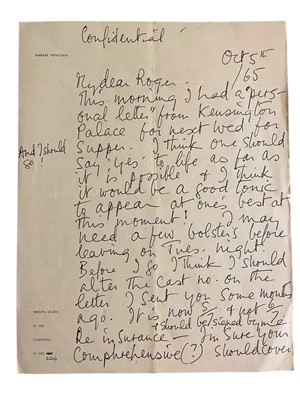 Confidential
BARBARA HEPWORTH
Oct 5th
/65
My dear Roger.
This morning I had a "pers-
onal letter" from Kensington
Palace for next Wed for
Supper. I think one should
And I should
go!
Say 'yes' to life as far as
it is possible & I think
it would be a good tonic
to appear at ones best at
this moment! I may
need a few bolsters before
leaving on Tues. night.
Before I go I think I should
alter the Cast no. on the
letter I sent you some months
ago. It is now & not
& should be signed by me
Re insurance — I'm sure your
Comphrehensive(?) should cover
TREWYN STUDIO
ST IVES
CORNWALL
ST IVES